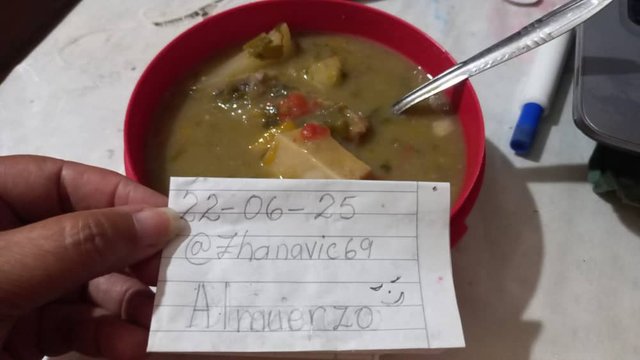 22-06-25
@Zhanavic69
Almuerzo